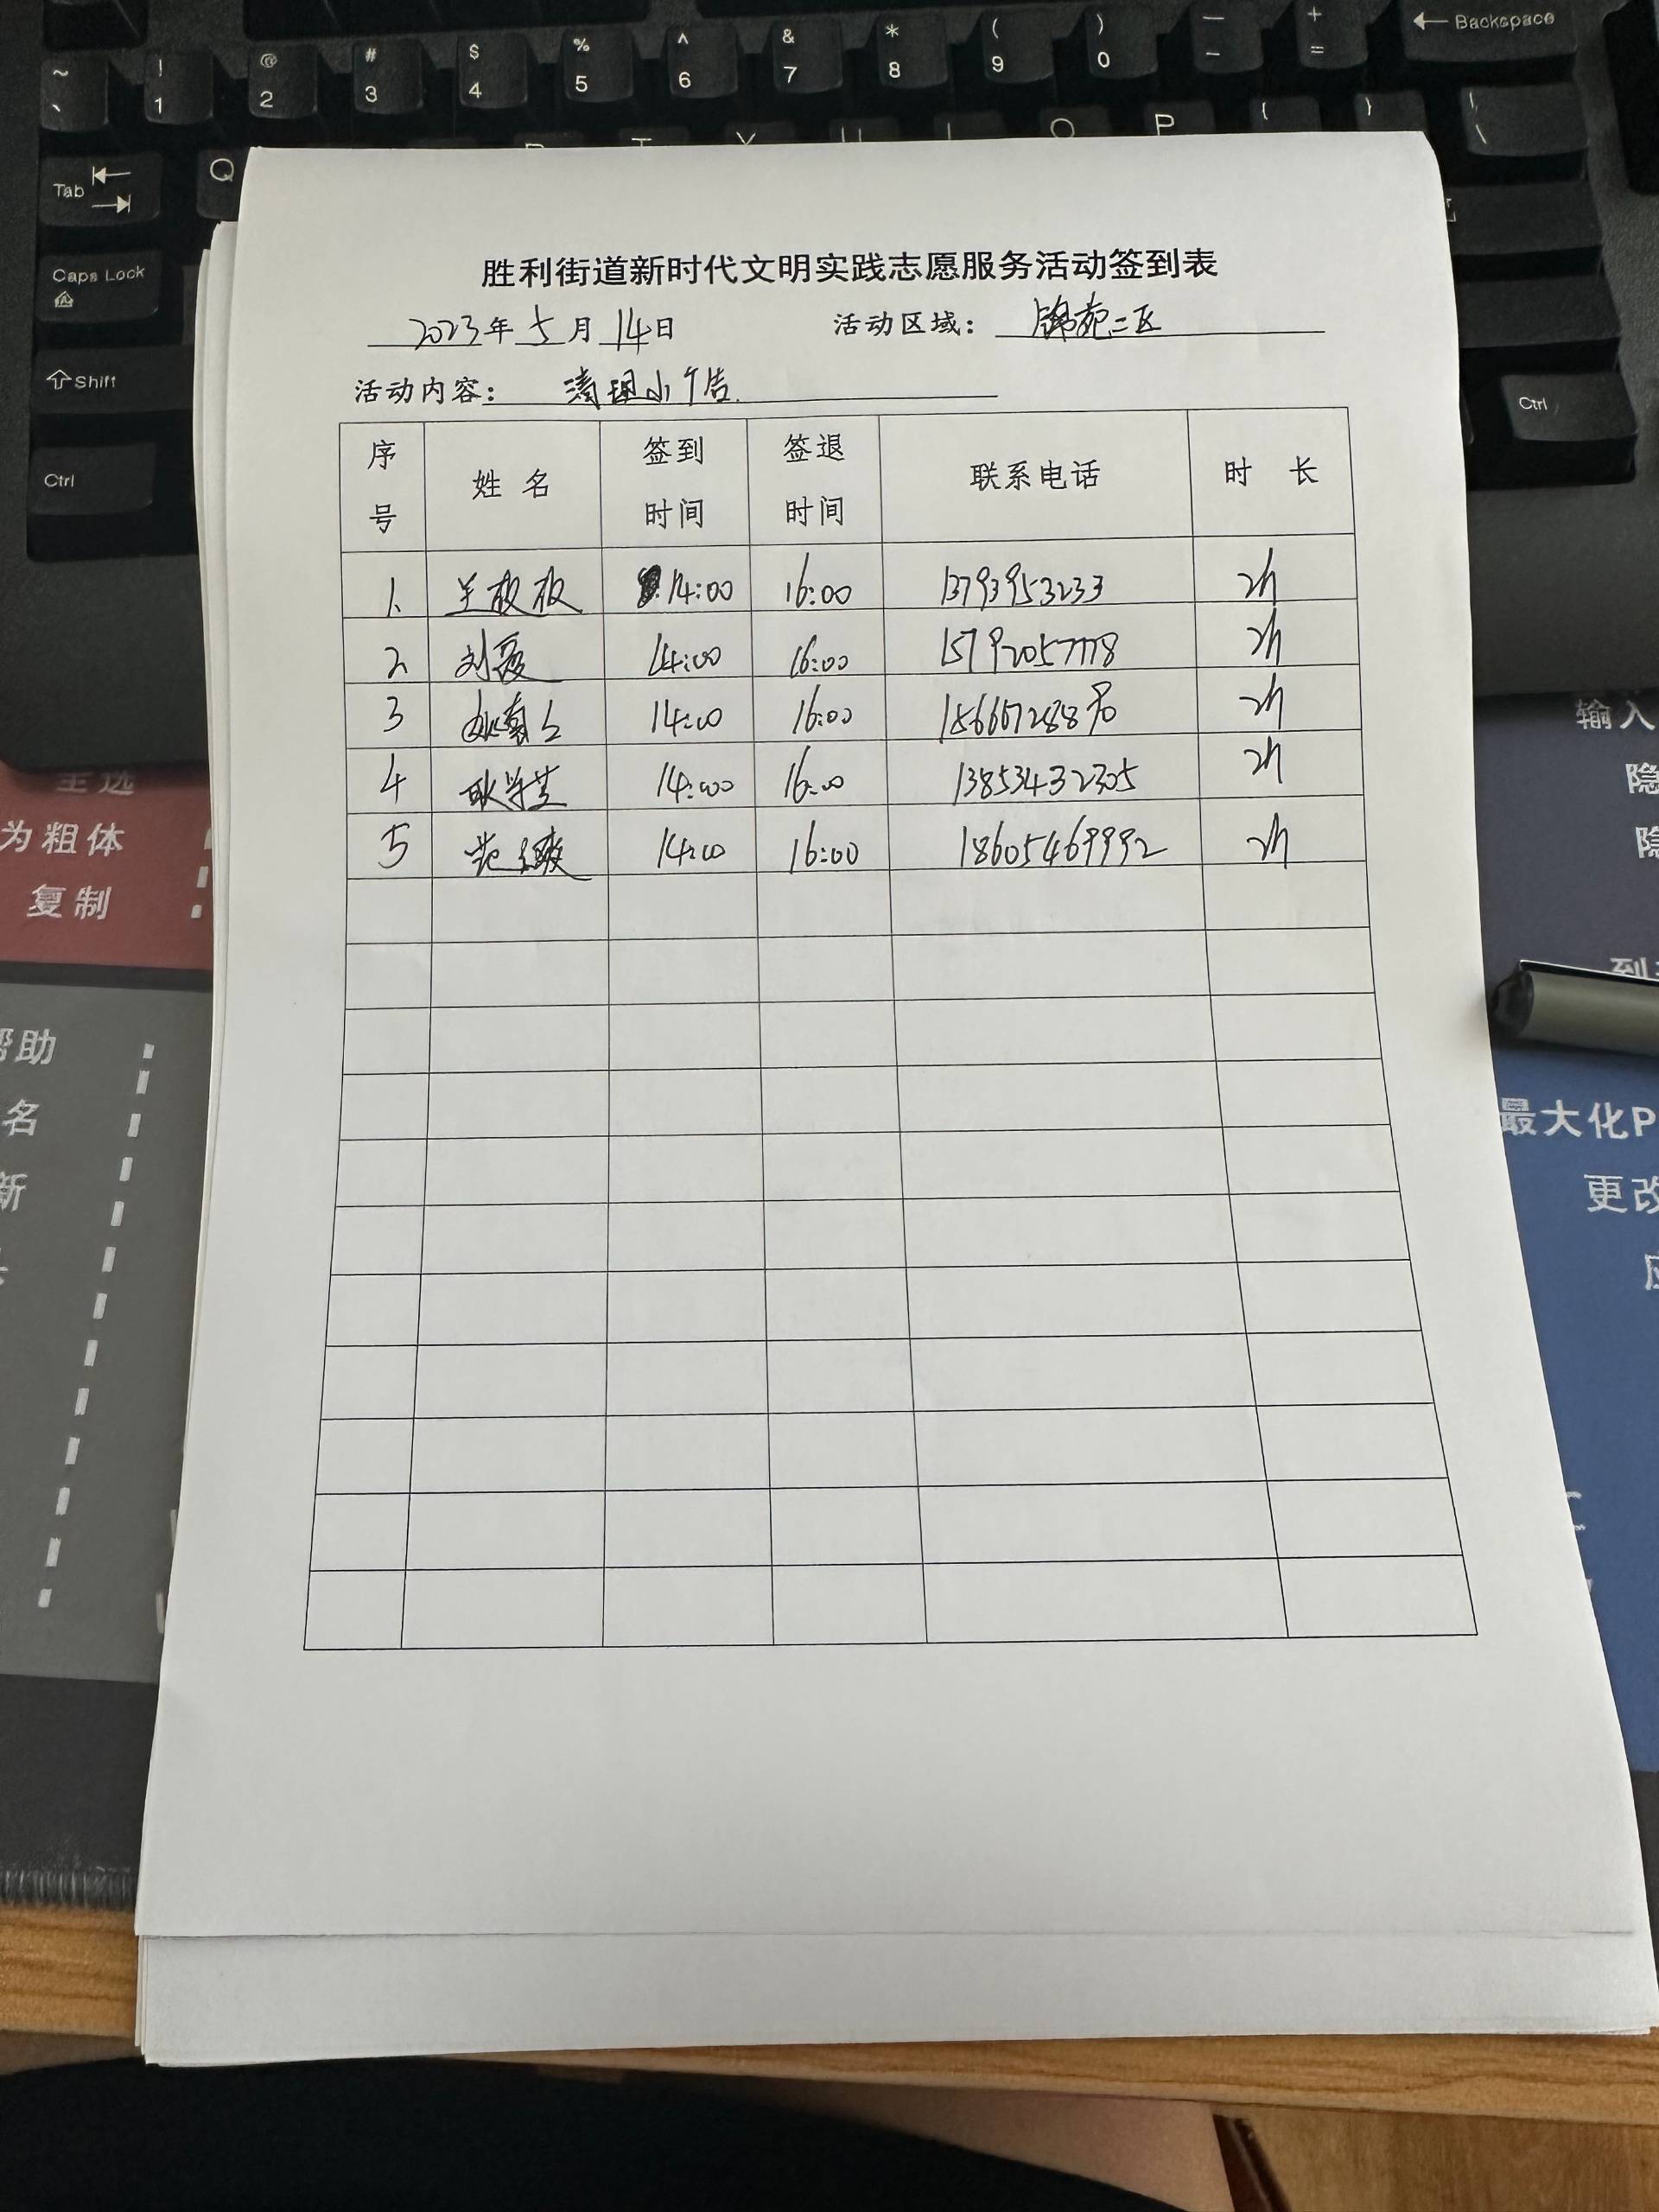 ~ ` ! 1 @ 2 # 3 $ 4 % 5 ^ 6 & 7 * 8 ( 9 ) 0 — - + = Backspace
Tab Q P
Caps Lock
Shift
Ctrl
Ctrl
胜利街道新时代文明实践志愿服务活动签到表
2023年 5 月 14日 活动区域： 锦苑二区
活动内容： 清理小广告.
序号 姓 名 签到时间 签退时间 联系电话 时 长
1. 14:00 16:00 13793953233 2h
2 刘霞 14:00 16:00 2h
3 14:00 16:00 2h
4 14:00 16:00 13853432305 2h
5 14:00 16:00 18605469992 2h
全选
为粗体
复制
帮助
名
新
输入
隐
隐
到
最大化P
更改
应